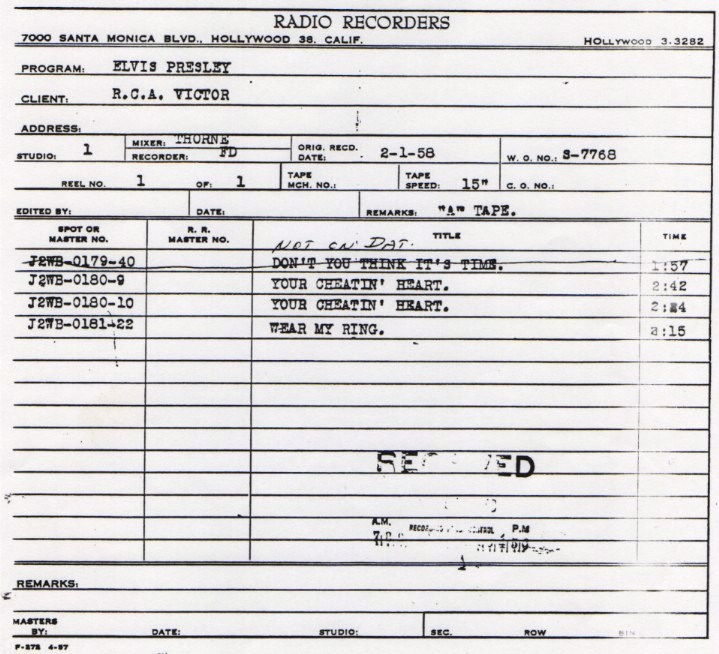 RADIO RECORDERS
7000 SANTA MONICA BLVD., HOLLYWOOD 38, CALIF. HOLLYWOOD 3-3282
PROGRAM: ELVIS PRESLEY
CLIENT: R.C.A. VICTOR
ADDRESS:
STUDIO: 1 MIXER: THORNE RECORDER: FD ORIG. RECD. DATE: 2-1-58 W. O. NO.: S-7768
REEL NO. 1 OF: 1 TAPE MCH. NO.: TAPE SPEED: 15" C. O. NO.:
EDITED BY: DATE: REMARKS: "A" TAPE.
SPOT OR MASTER NO. R. R. MASTER NO. TITLE TIME
NOT ON DAT.
J2WB-0179-40 DON'T YOU THINK IT'S TIME. 1:57
J2WB-0180-9 YOUR CHEATIN' HEART. 2:42
J2WB-0180-10 YOUR CHEATIN' HEART.
J2WB-0181-22 WEAR MY RING.
A.M. P.M
REMARKS:
MASTERS BY: DATE: STUDIO: SEC. ROW BIN
F-272 4-57